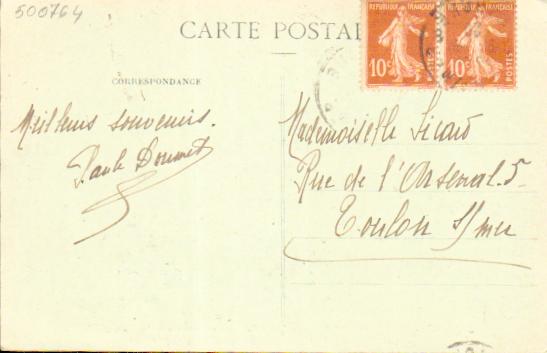 500764
CARTE POSTAL
REPUBLIQUE FRANÇAISE
10c
POSTES
REPUBLIQUE FRANÇAISE
10c
POSTES
CORRESPONDANCE
Meilleurs souvenirs.
Mademoiselle Sicard
Rue de l'Arsenal. 5
Toulon s/mer